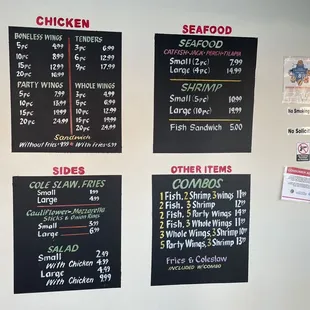 CHICKEN
BONELESS WINGS
5pc 4.99
10pc 8.99
15pc 12.99
20pc 16.99
TENDERS
3pc 6.99
6pc 9.99
9pc 17.99
PARTY WINGS
5pc 7.99
10pc 13.99
15pc 19.99
20pc 24.99
WHOLE WINGS
3pc 4.99
5pc 12.99
10pc
15pc 19.99
20pc 24.99
Sandwich
Without fries 4.99 & With Fries 6.99
SEAFOOD
SEAFOOD
CATFISH-JACK-PERCH-TILAPIA
Small (2pc) 7.99
Large (4pc) 14.99
SHRIMP
Small (5pc) 10.99
Large (10pc) 19.99
Fish Sandwich 5.00
SIDES
COLE SLAW, FRIES
Small 2.99
Large 3.99
Cauliflower-Mozzarella
Sticks & Onion Rings
Small 4.99
Large 6.99
SALAD
Small 2.99
With Chicken 4.99
Large 4.99
With Chicken 9.99
OTHER ITEMS
COMBOS
1 Fish, 2 Shrimp, 3 wings 11.99
2 Fish, 3 Shrimp 12.99
2 Fish, 5 Party Wings 14.99
2 Fish, 3 Whole Wings 14.99
3 Whole Wings, 3 Shrimp 10.99
5 Party Wings, 3 Shrimp 13.99
Fries & Coleslaw
INCLUDED W/COMBO
No Smoking
No Solicit